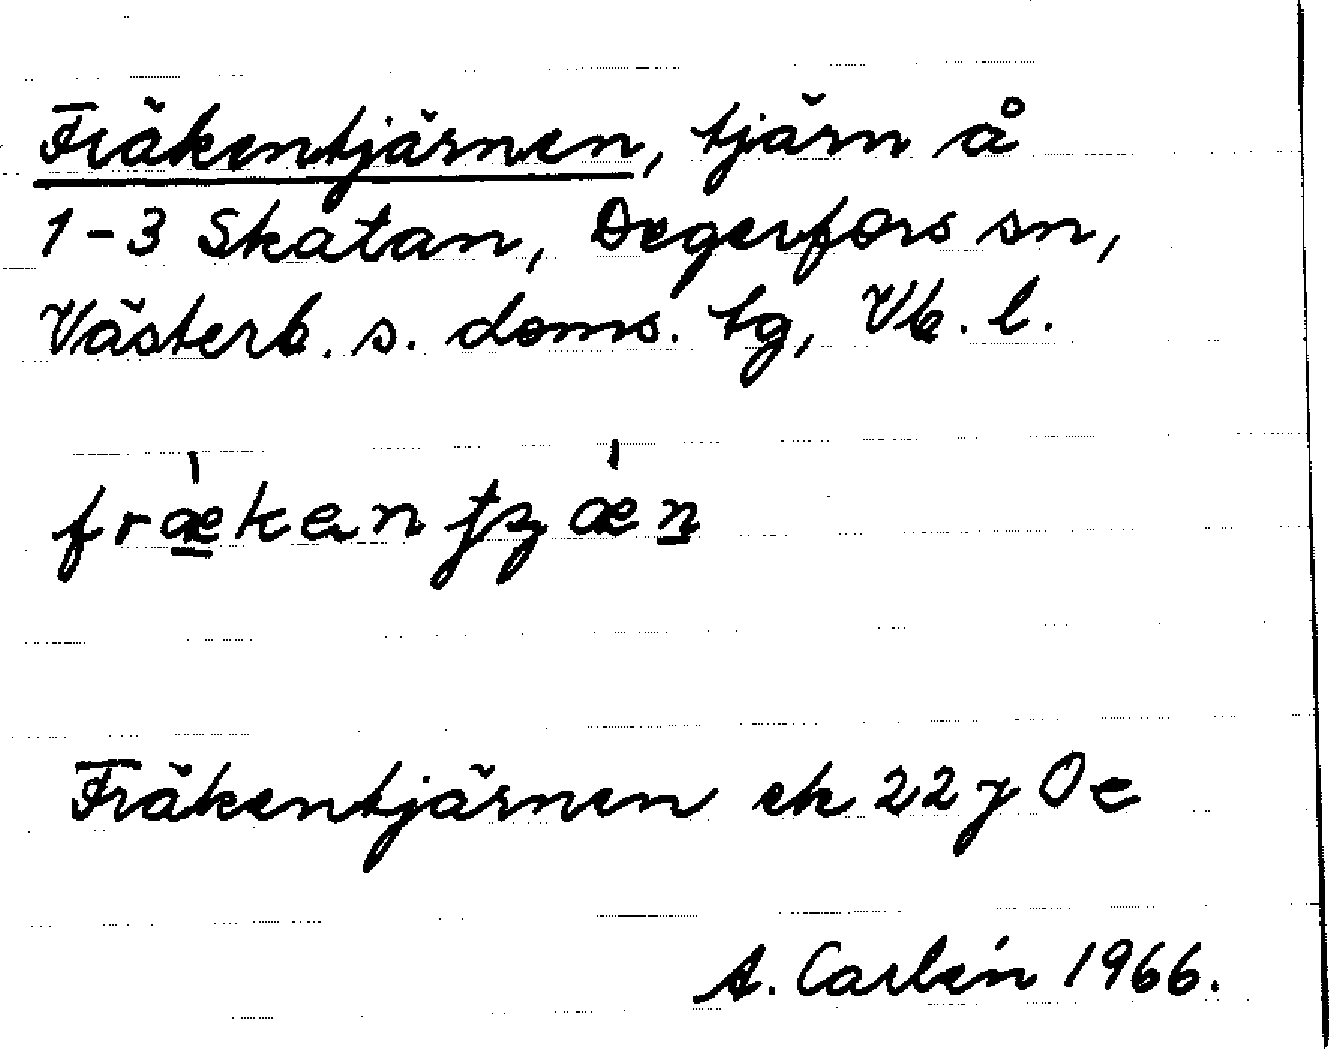 Fräkentjärnen, tjärn å
1-3 Skatan, Degerfors sn,
Västerb. s. doms. tg, Vb. l.
fræ̀kantȷæ̀n
Fräkentjärnen ek 22 j 0 e
A. Carlén 1966.